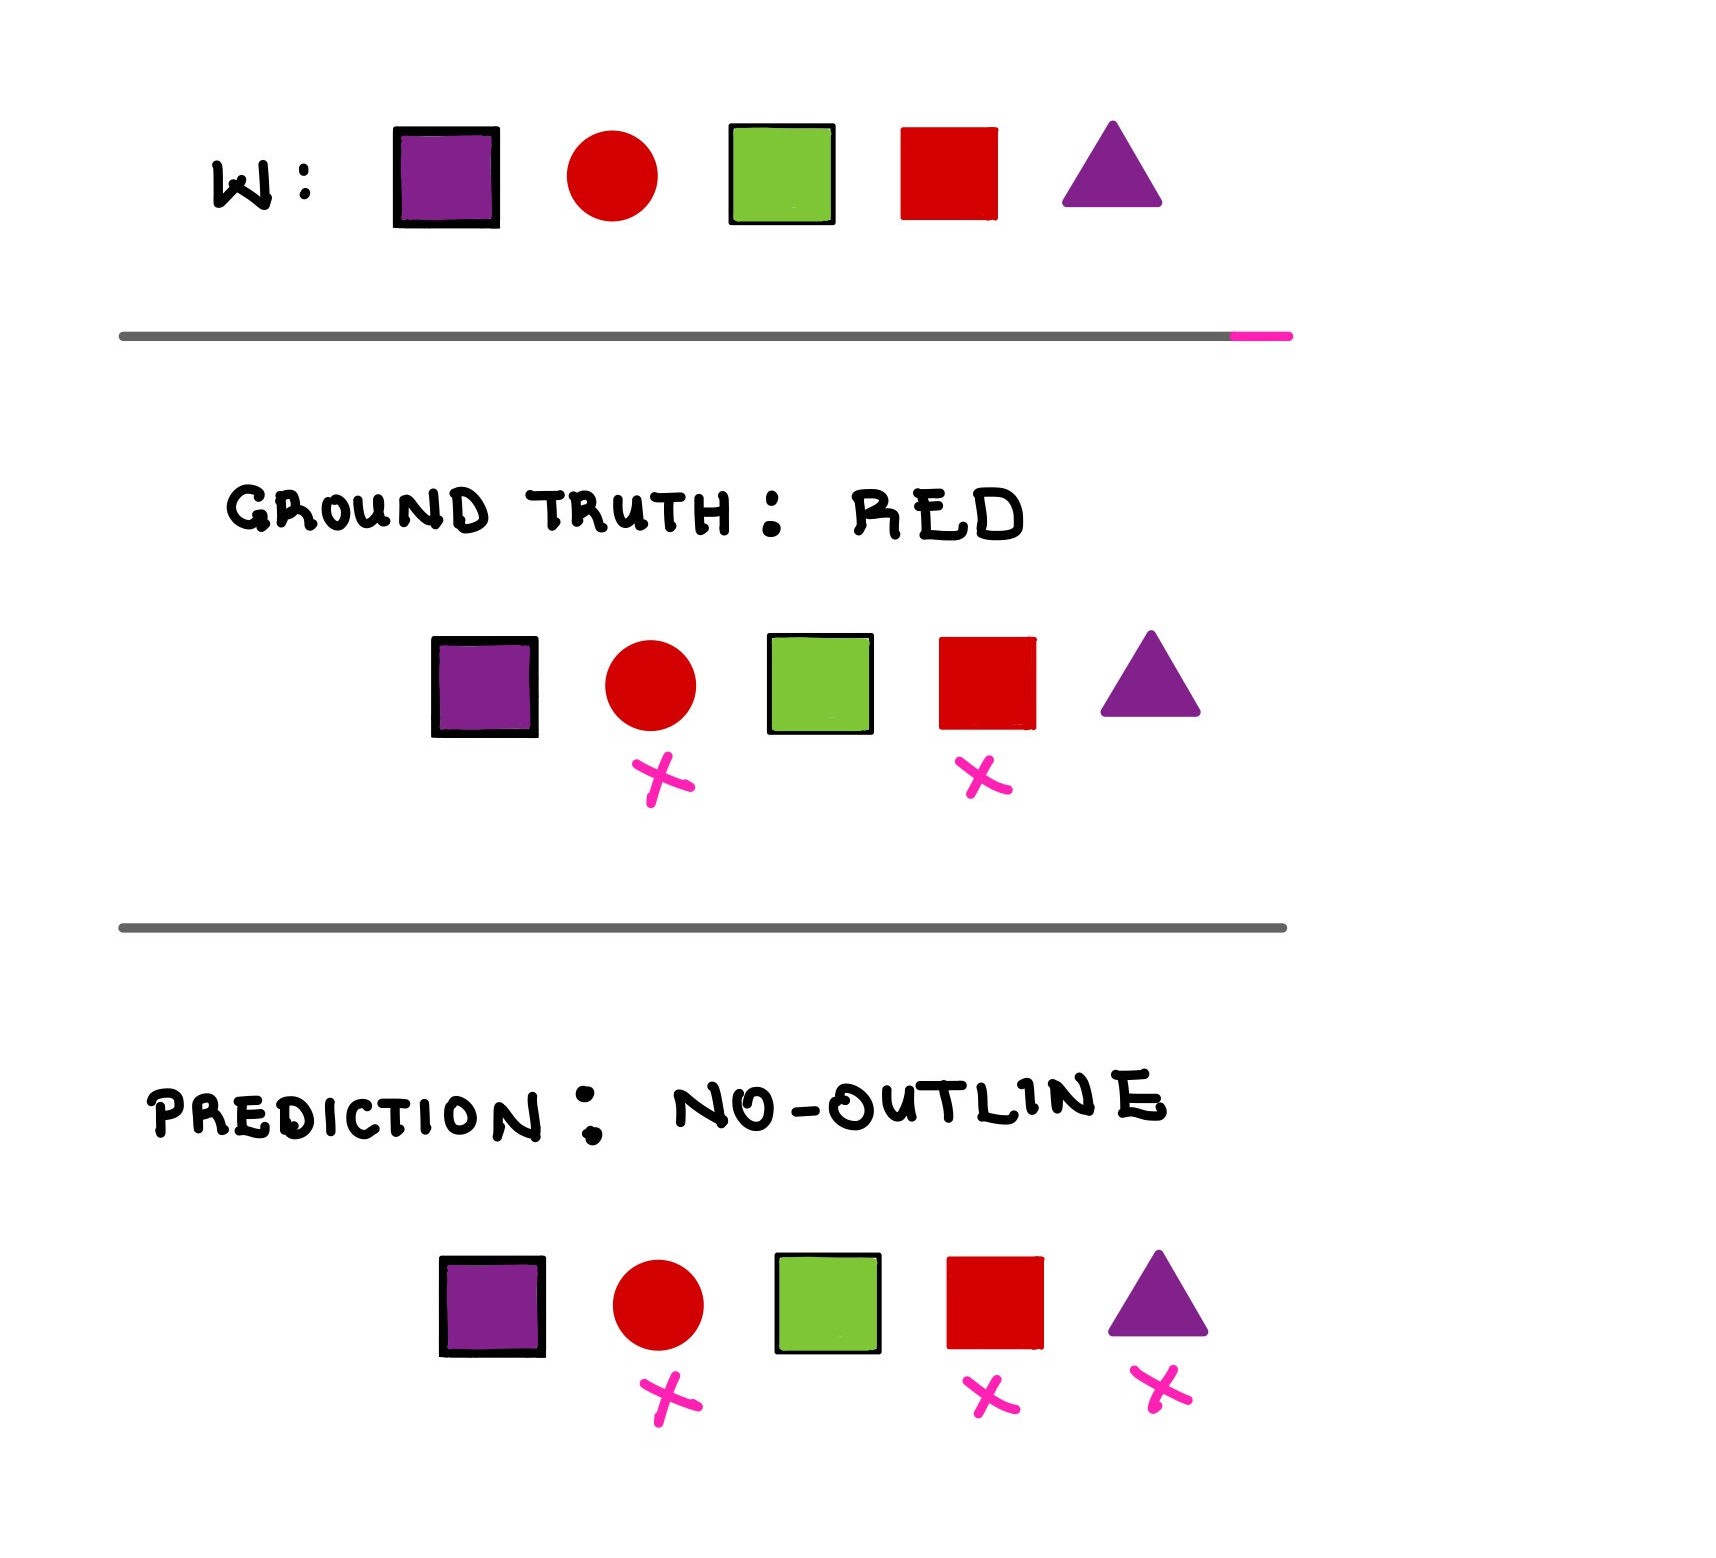 W:
GROUND TRUTH: RED
PREDICTION: NO-OUTLINE